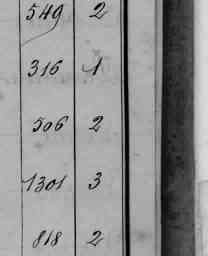 549 2
316 1
506 2
1301 3
818 2